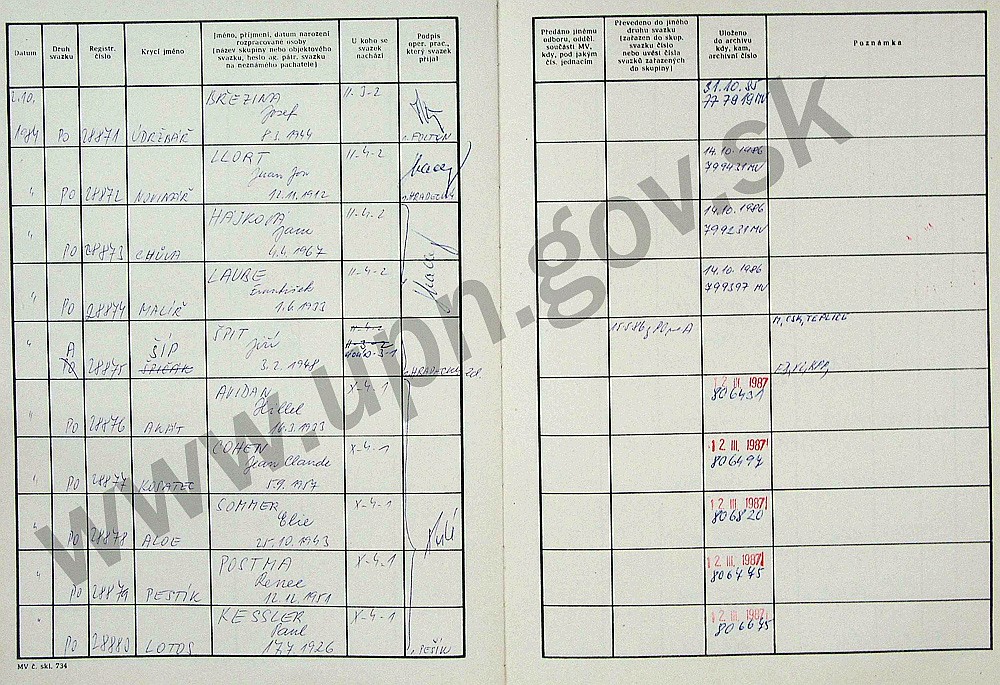 Datum
Druh svazku
Registr. číslo
Krycí jméno
Jméno, příjmení, datum narození
rozpracované osoby
(název skupiny nebo objektového
svazku, heslo ak. pátr. svazku
na neznámého pachatele)
U koho se
svazek
nachází
Podpis
oper. prac.,
který svazek
přijal
Předáno jinému
odboru, odděl.
součásti MV,
kdy, pod jakým
čís. jednacím
Převedeno do jiného
druhu svazku
(zařazen do skup.
svazku číslo
nebo uvést čísla
svazků zařazených
do skupiny)
Uloženo
do archivu
kdy, kam,
archivní číslo
Poznámka
2.10. BŘEZINA II-3-2 31.10.85
Josef 777919 MV
1984 PO 28871 ÚDRŽBÁŘ 8.3.1944
" LLORT II-4-2 14.10.1986
Juan 799431 MV
PO 28872 NOVINÁŘ 12.11.1912 HRADECKÝ
" HÁJKOVÁ II-4-2 14.10.1986
Jana 799231 MV
PO 28873 CHŮVA 4.4.1967
" LAUBE II-4-2 14.10.1986
František 799397 MV
PO 28874 MALÍŘ 1.6.1933
" ŠPIT II-4-2
A ŠÍP Jiří II-3-2
PO 28875 ŠPIČÁK 3.2.1948 HRADECKÝ
" AVIDAN X-4-1 12. III. 1987
Hillel 806431
PO 28876 AKÁT 16.3.1933
" COHEN X-4-1 12. III. 1987
Jean Claude 806494
PO 28877 KOPATEC 5.9.1957
" SOMMER X-4-1 12. III. 1987
Elie 806820
PO 28878 ALOE 25.10.1943
" POSTMA X-4-1 12. III. 1987
Renee 806475
PO 28879 PESTÍK 12.12.1951
KESSLER X-4-1 12. III. 1987
Paul 806675
PO 28880 LOTOS 17.7.1926 PEŠÍK
MV č. skl. 734
www.upn.gov.sk